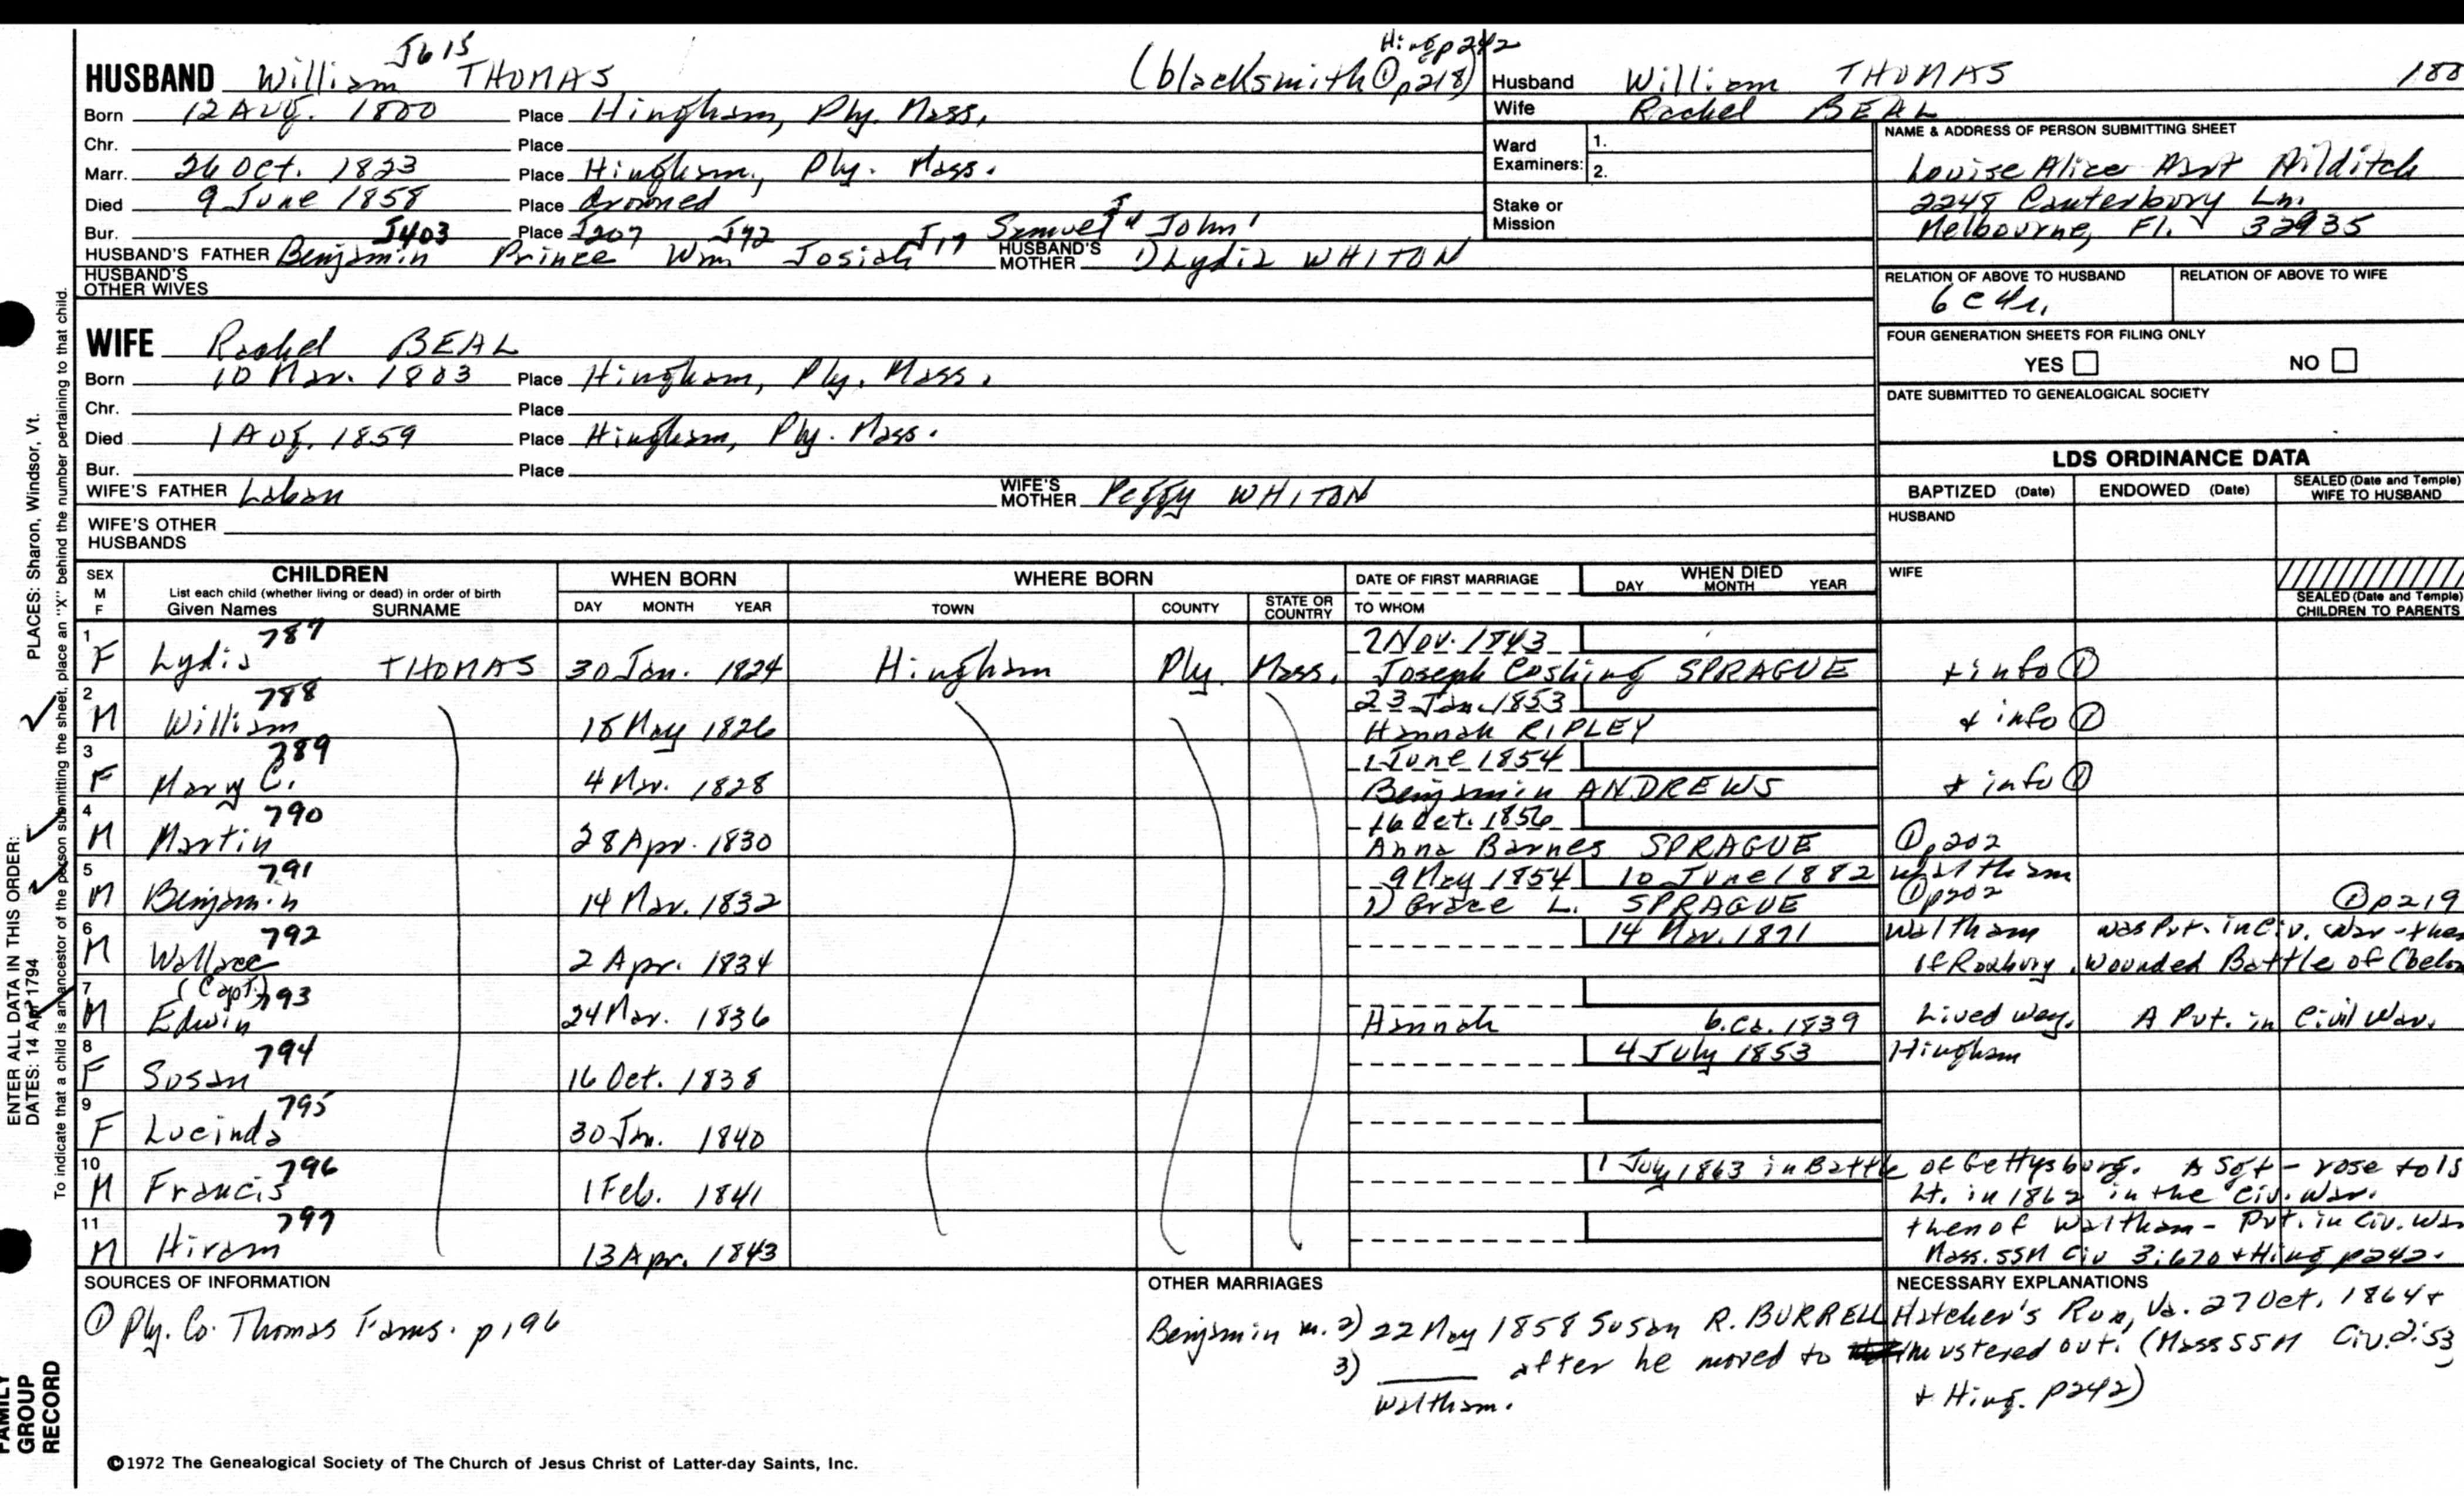 J615 Hing p242
HUSBAND William THOMAS (blacksmith ① p218) Husband William THOMAS 180
Born 12 Aug. 1800 Place Hingham, Ply. Mass. Wife Rachel BEAL
Chr. Place Ward Examiners: 1. 2. NAME & ADDRESS OF PERSON SUBMITTING SHEET
Marr. 26 Oct. 1823 Place Hingham, Ply. Mass. Louise Alice Hilditch
Died 9 June 1858 Place drowned Stake or Mission 2248 Canterbury Ln.
Bur. Place Melbourne, Fl. 32935
J403 J207 J72 J17 Samuel John
HUSBAND'S FATHER Benjamin Prince Wm Josiah HUSBAND'S MOTHER 1) Lydia WHITON
HUSBAND'S OTHER WIVES
RELATION OF ABOVE TO HUSBAND RELATION OF ABOVE TO WIFE
6C4r.
WIFE Rachel BEAL
FOUR GENERATION SHEETS FOR FILING ONLY
YES NO
Born 10 Mar. 1803 Place Hingham, Ply. Mass.
DATE SUBMITTED TO GENEALOGICAL SOCIETY
Chr. Place
Died 1 Aug. 1859 Place Hingham, Ply. Mass.
Bur. Place
LDS ORDINANCE DATA
WIFE'S FATHER Laban WIFE'S MOTHER Peggy WHITON
BAPTIZED (Date) ENDOWED (Date) SEALED (Date and Temple) WIFE TO HUSBAND
WIFE'S OTHER HUSBANDS
HUSBAND
WIFE
SEALED (Date and Temple) CHILDREN TO PARENTS
SEX M F CHILDREN WHEN BORN WHERE BORN DATE OF FIRST MARRIAGE WHEN DIED
List each child (whether living or dead) in order of birth
Given Names SURNAME DAY MONTH YEAR TOWN COUNTY STATE OR COUNTRY TO WHOM DAY MONTH YEAR
1 787 2 Nov. 1843
F Lydia THOMAS 30 Jan. 1824 Hingham Ply. Mass. Joseph Cushing SPRAGUE + info ①
2 788 23 Jan. 1853
M William 18 May 1826 Hannah RIPLEY + info ①
3 789 1 June 1854
F Mary C. 4 Mar. 1828 Benjamin ANDREWS + info ①
4 790 16 Oct. 1856
M Martin 28 Apr. 1830 Anna Barnes SPRAGUE ① p202
5 791 9 May 1854 10 June 1882 Waltham
M Benjamin 14 Mar. 1832 1) Grace L. SPRAGUE ① p202 ① p219
6 792 14 Mar. 1871 Waltham was Pvt. in Civ. War - then
M Wallace 2 Apr. 1834 of Roxbury, Wounded Battle of (below
7 (Capt.) 793
M Edwin 24 Mar. 1836 Hannah b. ca. 1839 Lived Wey. A Pvt. in Civil War.
8 794 4 July 1853 Hingham
F Susan 16 Oct. 1838
9 795
F Lucinda 30 Jan. 1840
10 796 1 July 1863 in Battle of Gettysburg. A Sgt - rose to 1s
M Francis 1 Feb. 1841 Lt. in 1862 in the Civ. War.
11 797 then of Waltham - Pvt. in Civ. War
M Hiram 13 Apr. 1843 Mass. SSM Civ 3:670 + Hing p242.
SOURCES OF INFORMATION OTHER MARRIAGES NECESSARY EXPLANATIONS
① Ply. Co. Thomas Fams. p196
Benjamin m. 2) 22 May 1858 Susan R. BURRELL
3) after he moved to
Waltham.
Hatcher's Run, Va. 27 Oct. 1864 +
mustered out. (Mass SSM Civ. 2:53
+ Hing. p242)
©1972 The Genealogical Society of The Church of Jesus Christ of Latter-day Saints, Inc.
ENTER ALL DATA IN THIS ORDER: PLACES: Sharon, Windsor, Vt.
DATES: 14 Apr 1794
To indicate that a child is an ancestor of the person submitting the sheet, place an "X" behind the number pertaining to that child.
FAMILY
GROUP
RECORD